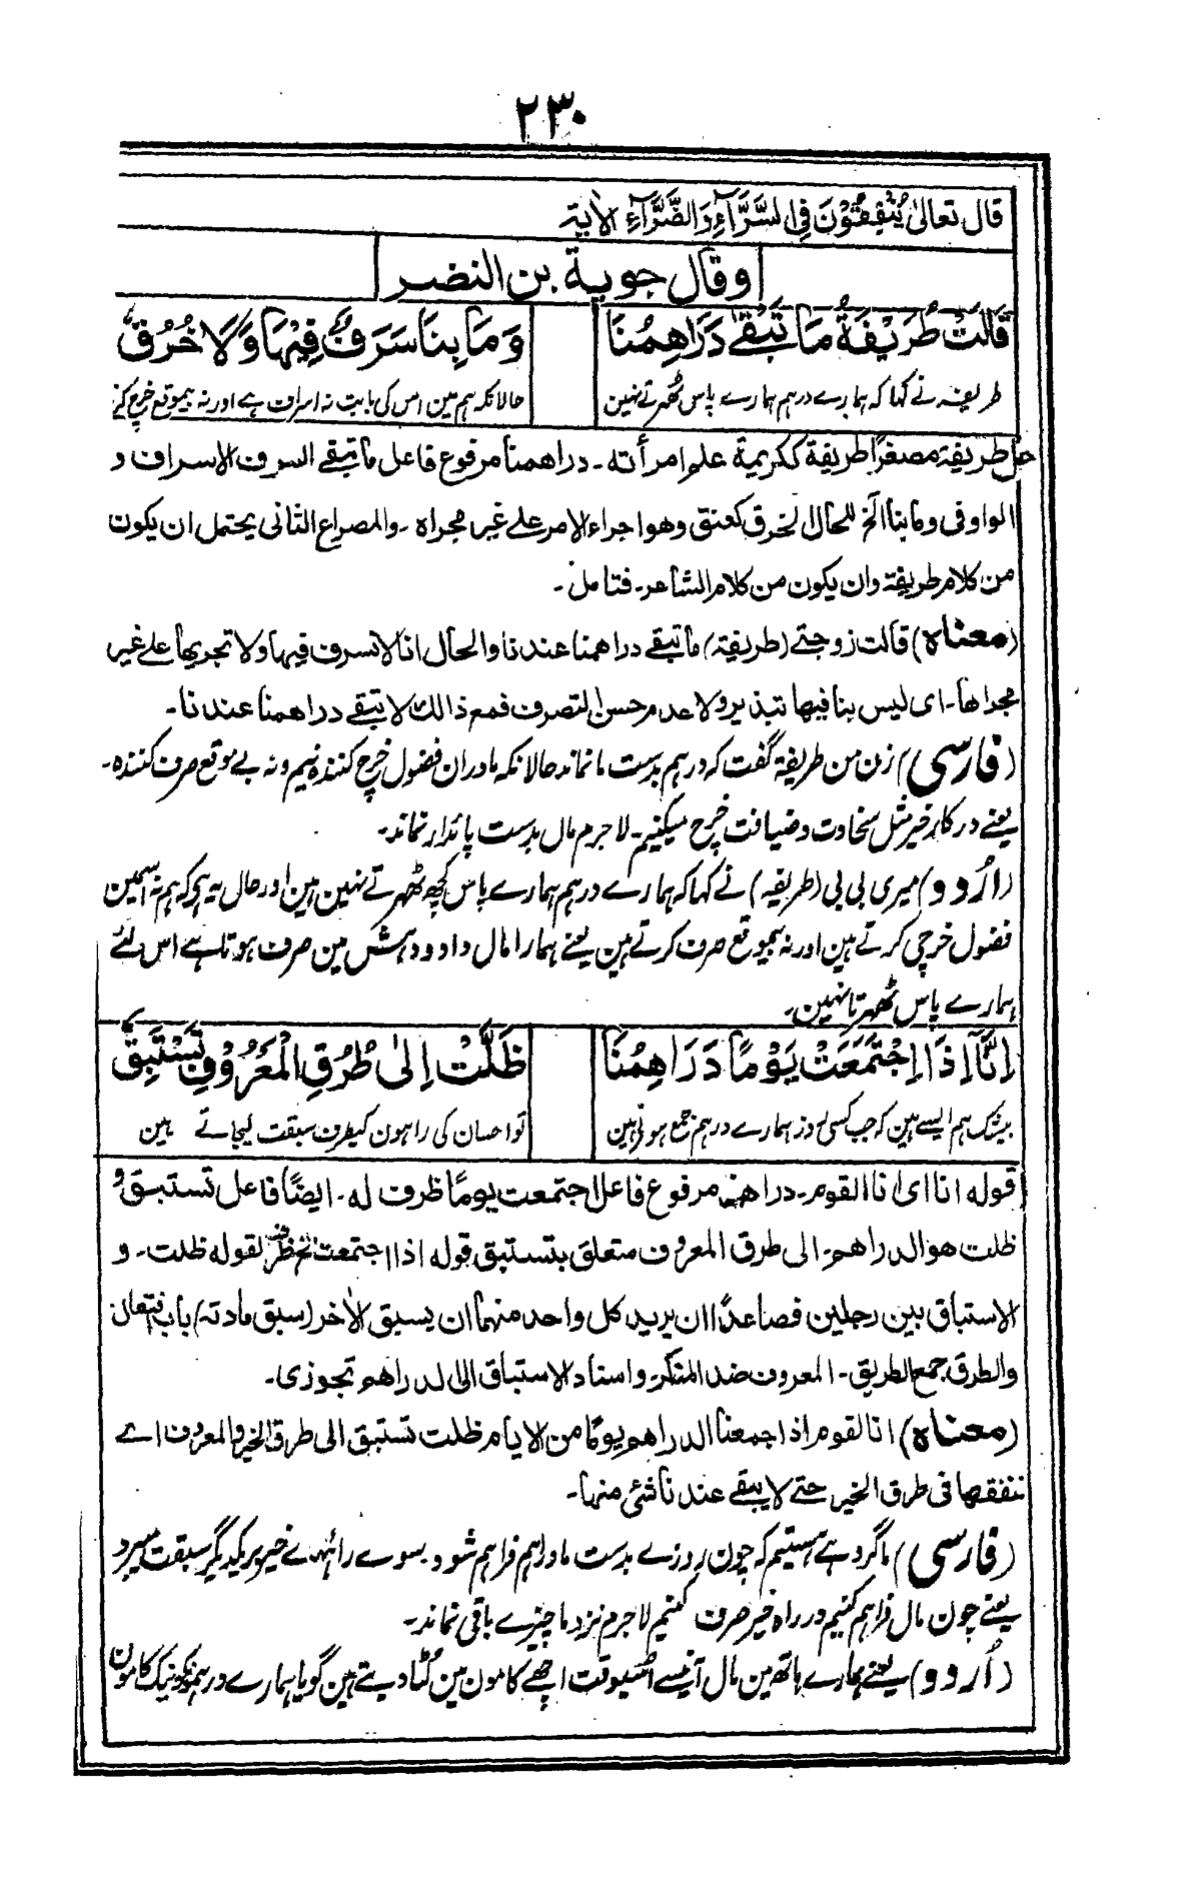 ۲۳۰
قال تعالیٰ يُنْفِقُوْنَ فِي السَّرَّآءِ وَالضَّرَّآءِ الاٰیۃ
وقال جویة بن النضر
قَالَتْ طُرَيْفَةُ مَا تَبْقٰى دَرَاهِمُنَا وَمَا بِنَا سَرَفٌ فِيْهَا وَلَا خُرُقٌ
طریفہ نے کہا کہ ہمارے درہم ہمارے پاس ٹھہرتے نہین حالانکہ ہم مین اس کی بابت نہ اسراف ہے اور نہ بیموقع خرچ کرنا
حل طريفة مصغراً طريفة ككريمة علم امرأته ۔ دراهمنا مرفوع فاعل ما تبقے السرف الاسراف و
الواو فى وما بنا الخ للحال الخرق كعنق وهو اجراء الامر علے غير مجراه ۔ والمصراع الثانى يحتمل ان يكون
من كلام طريفة وان يكون من كلام الشاعر ۔ فتامل ۔
(معناه) قالت زوجتے (طريفة) ما تبقے دراهمنا عندنا والحال انا لا نسرف فيها ولا نجريها علے غير
مجراها ۔ اى ليس بنا فيها تبذير ولا عدم حسن التصرف فمع ذالك لا تبقے دراهمنا عندنا ۔
(فارسی) زن من طریفۃ گفت کہ درہم بدست ما نماند حالانکہ ما دران فضول خرچ کنندہ نیم و نہ بے موقع صرف کنندہ ۔
یعنے در کار خیر مثل سخاوت و ضیافت خرچ میکنیم ۔ لاجرم مال بدست پائدار نماند ۔
(اُردو) میری بی بی (طریفہ) نے کہا کہ ہمارے درہم ہمارے پاس کچھ ٹھہرتے نہین ہین اور حال یہ ہے کہ ہم نہ اسمین
فضول خرچی کرتے ہین اور نہ بیموقع صرف کرتے ہین یعنے ہمارا مال داد و دہش مین صرف ہوتا ہے اس لئے
ہمارے پاس ٹھہرتا نہین ۔
اِنَّآ اِذَا اجْتَمَعَتْ يَوْمًا دَرَاهِمُنَا ظَلَّتْ اِلٰى طُرُقِ الْمَعْرُوْفِ تَسْتَبِقُ
بیشک ہم ایسے ہین کہ جب کسی روز ہمارے درہم جمع ہوتے ہین تو احسان کی راہون کیطرف سبقت لیجاتے ہین
قوله انا اى انا القوم ۔ دراهمنا مرفوع فاعل اجتمعت يومًا ظرف له ۔ ايضًا فاعل تستبق و
ظلت هو الدراهم ۔ الى طرق المعروف متعلق بتستبق قوله اذا اجتمعت الخ ظرف لقوله ظلت ۔ و
الاستباق بين رجلين فصاعدًا ان يريد كل واحد منهما ان يسبق الآخر (سبق مادته) باب افتعال
والطرق جمع الطريق ۔ المعروف ضد المنكر و اسناد الاستباق الى الدراهم تجوزى ۔
(معناه) انا لقوم اذا جمعنا الدراهم يومًا من الايام ظلت تستبق الى طرق الخير والمعروف اے
ننفقها فى طرق الخير حتے لا يبقے عندنا شئ منها ۔
(فارسی) ما گروہے ہستیم کہ چون روزے بدست ما دراہم فراہم شود بسوے راہہاے خیر بر یکدیگر سبقت میبرد
یعنے چون مال فراہم کنیم در راہ خیر صرف کنیم لاجرم نزد ما چیزے باقی نماند ۔
(اُردو) یعنے ہمارے ہاتھ مین مال آنیسے اُسیوقت اچھے کامون مین لُٹا دیتے ہین گویا ہمارے درہمونکو نیک کامون